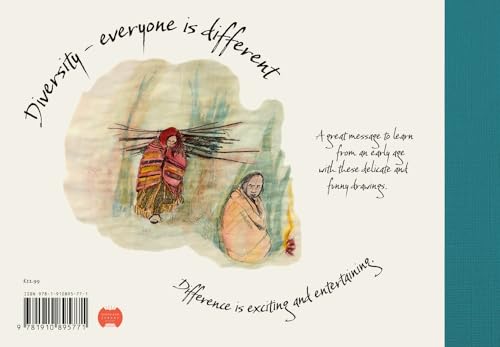 Diversity – everyone is different
A great message to learn
from an early age
with these delicate and
funny drawings.
Difference is exciting and entertaining.
£11.99
ISBN 978-1-910895-77-1
9 781910 895771